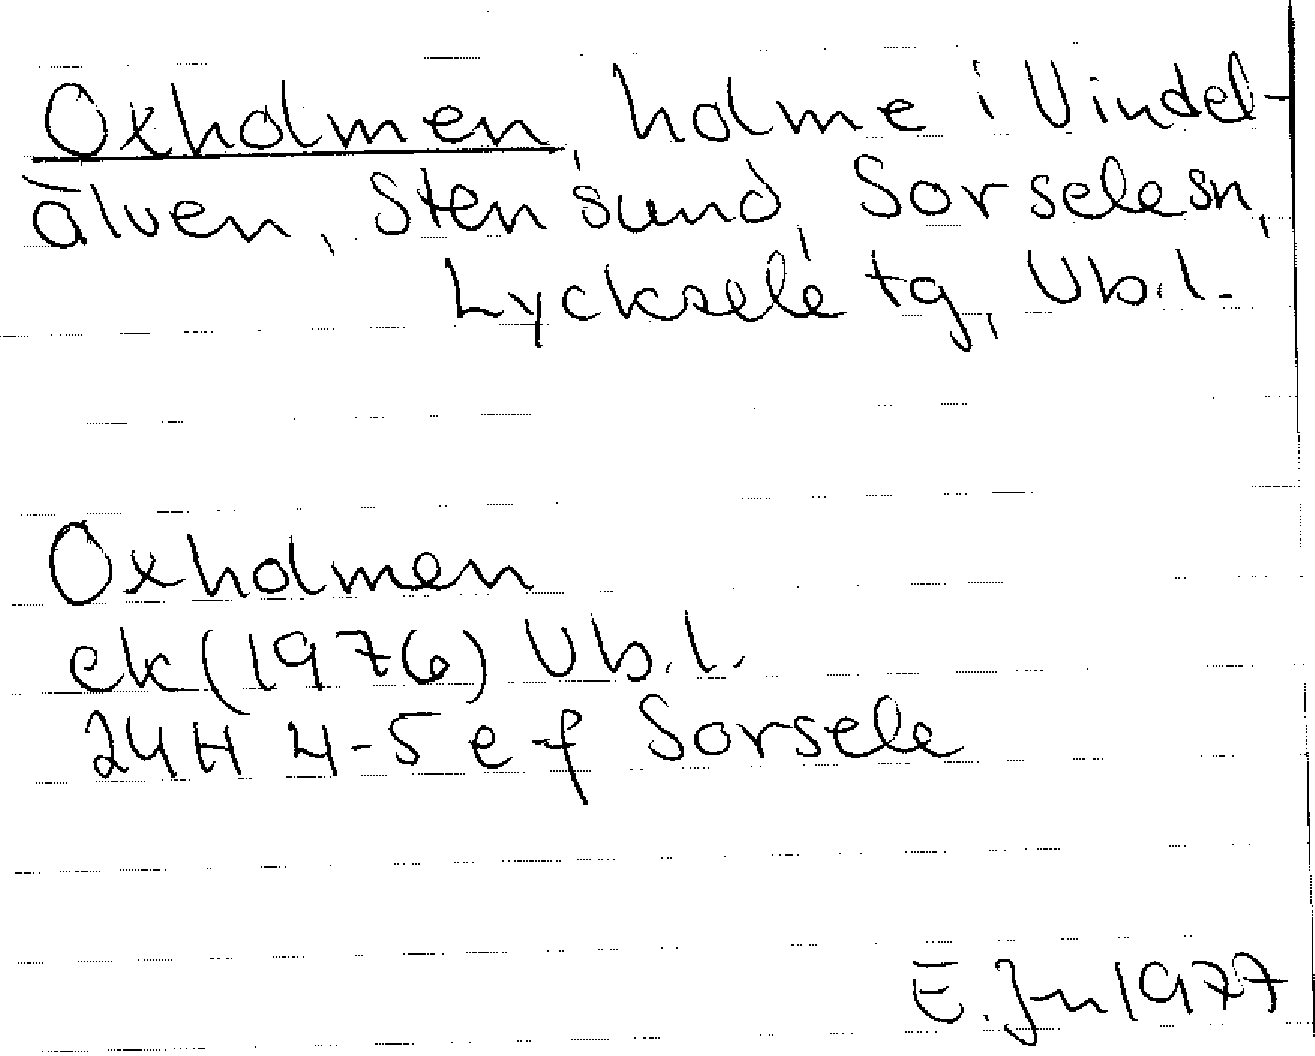 Oxholmen, holme i Vindel-
älven, Stensund, Sorsele sn,
Lycksele tg, Vb.l.
Oxholmen
ek (1976) Vb.l.
24H 4-5 e-f Sorsele
E. Jn 1977